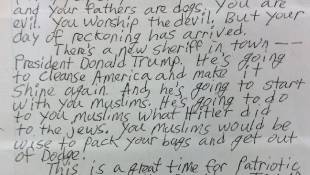 and your fathers are dogs. You are
evil. You worship the devil. But your
day of reckoning has arrived.
There's a new sheriff in town --
President Donald Trump. He's going
to cleanse America and make it
shine again. And, he's going to start
with you muslims. He's going to do
to you muslims what Hitler did
to the jews. You muslims would be
wise to pack your bags and get out
of Dodge.
This is a great time for Patriotic